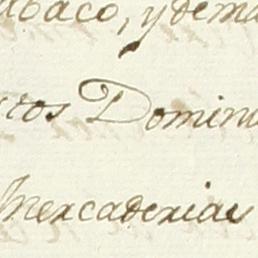 abaco, y dema
cos Domin
Mercaderias